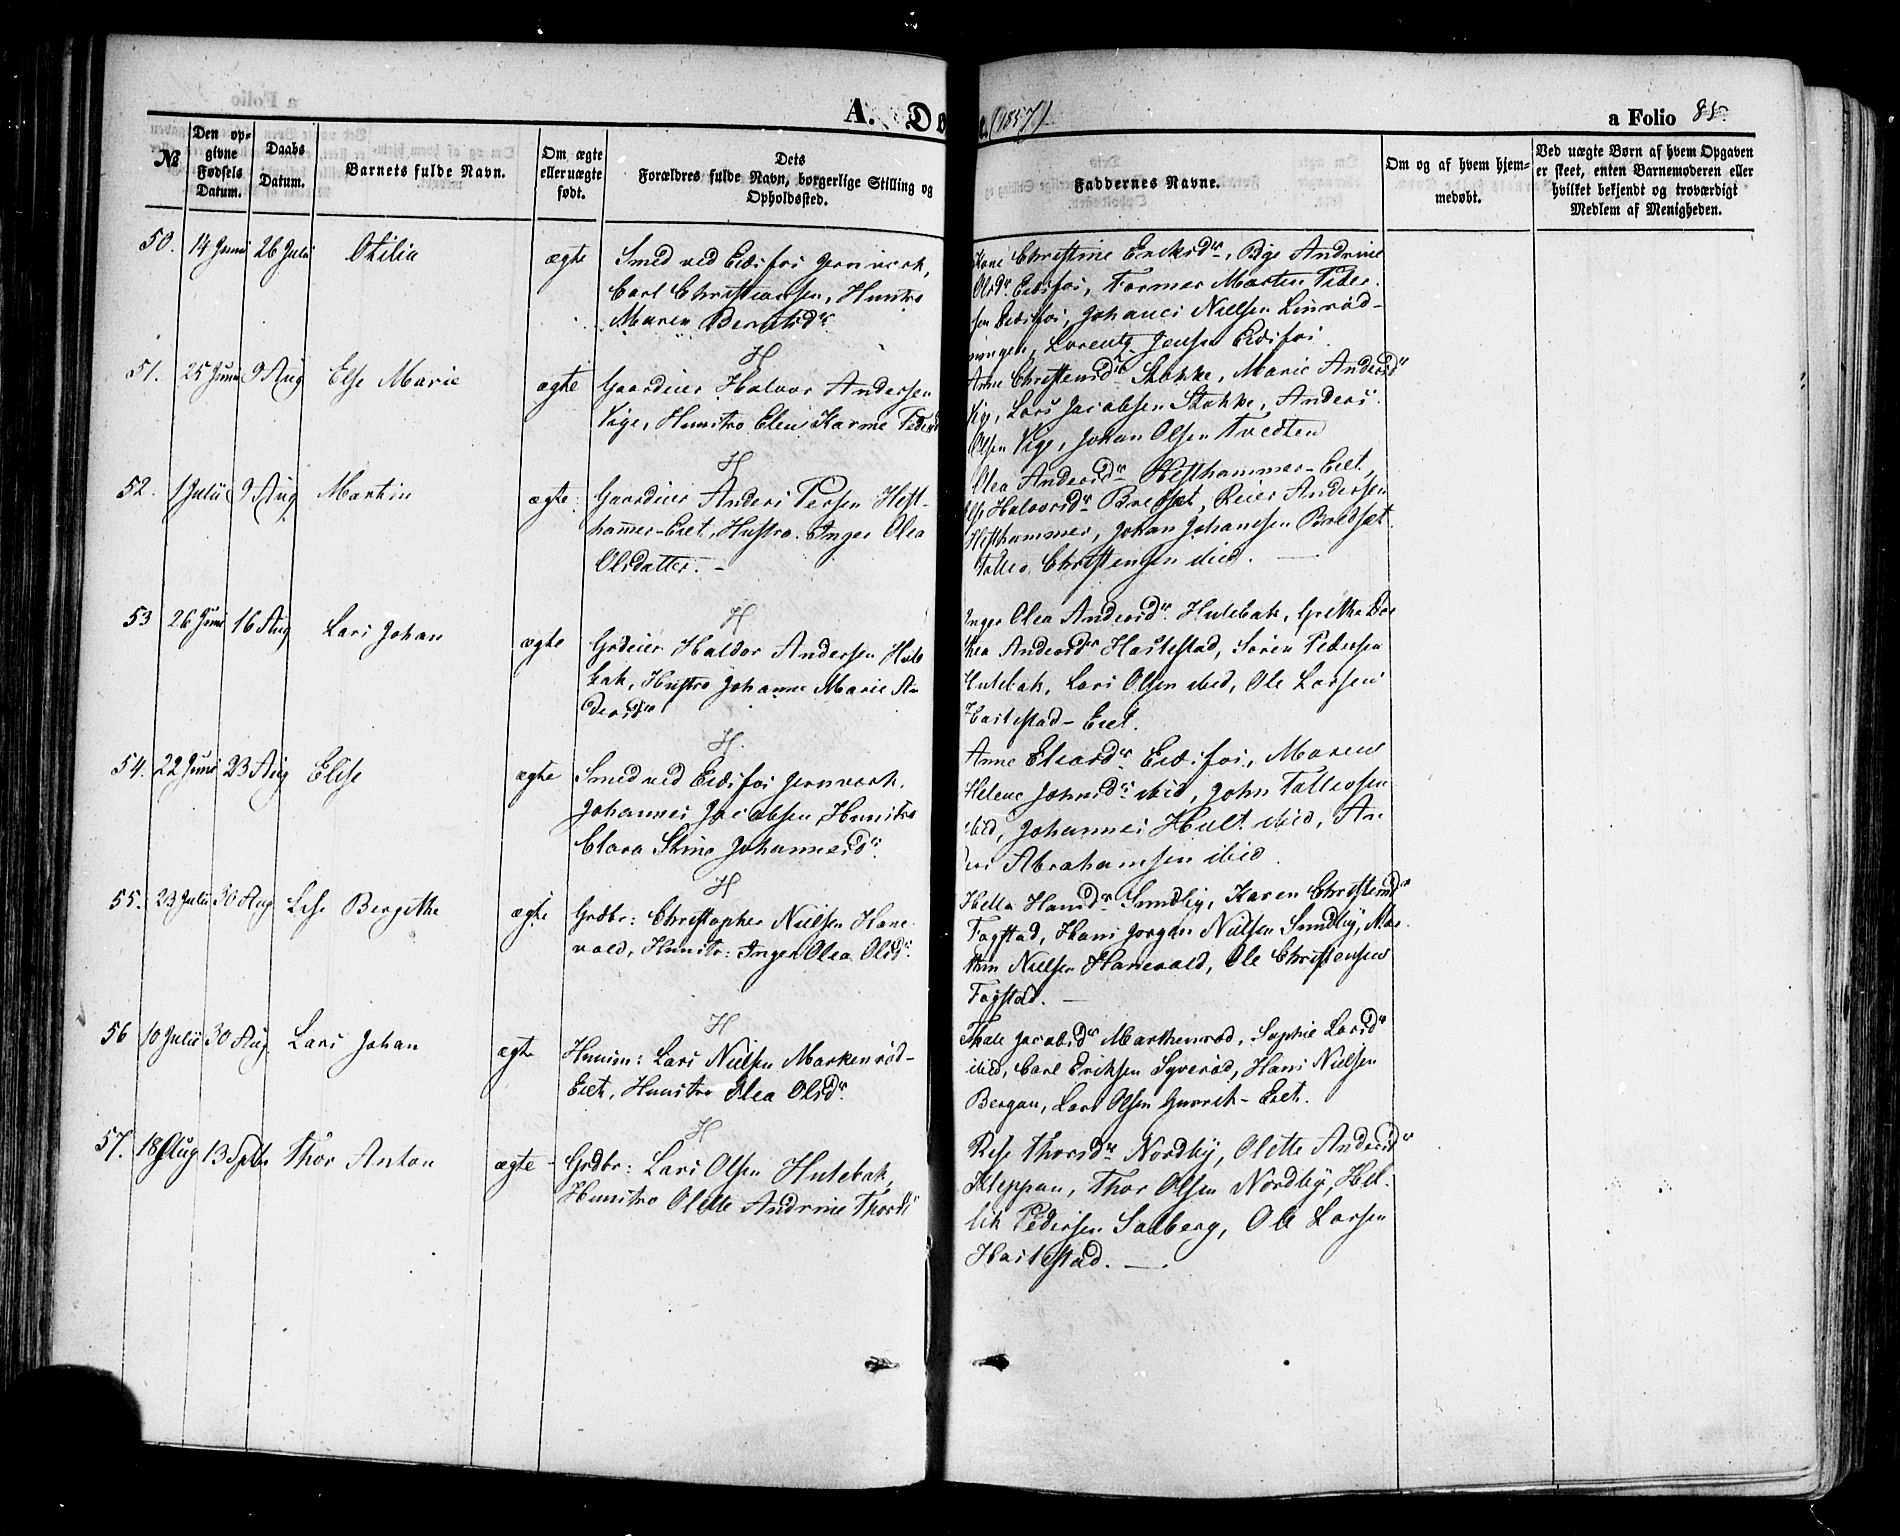 A. Dø
e. (1857)
a Folio 85.
№
Den op-
givne
Fødsels
Datum.
Daabs
Datum.
Barnets fulde Navn.
Om ægte
eller uægte
født.
Dets
Forældres fulde Navn, borgerlige Stilling og
Opholdssted.
Faddernes Navne.
Om og af hvem hjem-
medøbt.
Ved uægte Børn af hvem Opgaven
er skeet, enten Barnemoderen eller
hvilket bekjendt og troværdigt
Medlem af Menigheden.
50. 14 Juni 26 Juli Othilia ægte Smed ved Eidsfos Jernværk,
Carl Christiansen, Hustro
Maren Berntsdr
Kone Christine Eriksdr, Pige Andrine
Olsdr Eidsfos, Former Morten Peder-
sen Eidsfos, Johanes Nielsen
Lorentz Jensen Eidsfos.
H
51. 25 Juni 9 Aug Else Marie ægte Gaardeier Halvor Andersen
Vige, Hustro Elen Karine Peders
Anne Christensdr Stokke, Marie Andersdr
Vig, Lars Jacobsen Stokke, Anders
Olsen Vige, Johan Olsen Tvedten
H
52. 1 Julii 9 Aug Martin ægte Gaardeier Anders Persen Hest-
hammer-Eiet, Hustro Inger Olea
Olsdatter. –
Olea Andersdr Hesthammer-Eiet,
Else Halvorsdr Bredset, Reier Andersen
Hesthammer, Johan Johansen Bredset
Tollev Christensen ibid. —
H
53 26 Juni 16 Aug Lars Johan ægte Grdeier Haldor Andersen Hule
bak, Hustro Johanne Marie An
dersdr
Inger Olea Andersdr Hulebak, Grethe Do
thea Andersdr Hastestad, Søren Pedersen
Hulebak, Lars Olsen ibid, Ole Larsen
Hastestad-Eiet.
H.
54. 22 Juni 23 Aug Elise ægte Smed ved Eidsfos Jernværk,
Johannes Jacobsen, Hustro
Clara Stine Johannesdr.
Anne Eliasdr Eidsfos, Maren
Helene Johnsdr ibid, John Tollevsen
ibid, Johannes Holt ibid, An
ders Abrahamsen ibid.
H
55. 23 Julii 30 Aug Lise Bergithe ægte Grdbr: Christopher Nielsen Hane
vald, Hustr: Inger Olea Olsdr.
Helle Hansdr Sundby, Karen Christensdr
Fogstad, Hans Jørgen Nielsen Sundby, Mar
thin Nielsen Hanevald, Ole Christensen
Fogstad. —
H
56 10 Julii 30 Aug Lars Johan ægte Huusm: Lars Nielsen Markenrød-
Eiet, Hustro Olea Olsdr.
Thale Jacobsdr Markenrød, Sophie Larsdr
ibid, Carl Eriksen Syverød, Hans Nielsen
Bergan, Lars Olsen -Eiet.
H
57. 18 Aug 13 Sptbr Thor Anton ægte – Grdbr: Lars Olsen Hulebak,
Hustro Olette Andrine Thorsd
Thorsdr Nordby, Olette Andersdr
Kleppan, Thor Olsen Nordby, Hel-
lik Pedersen Solberg, Ole Larsen
Hastestad. —